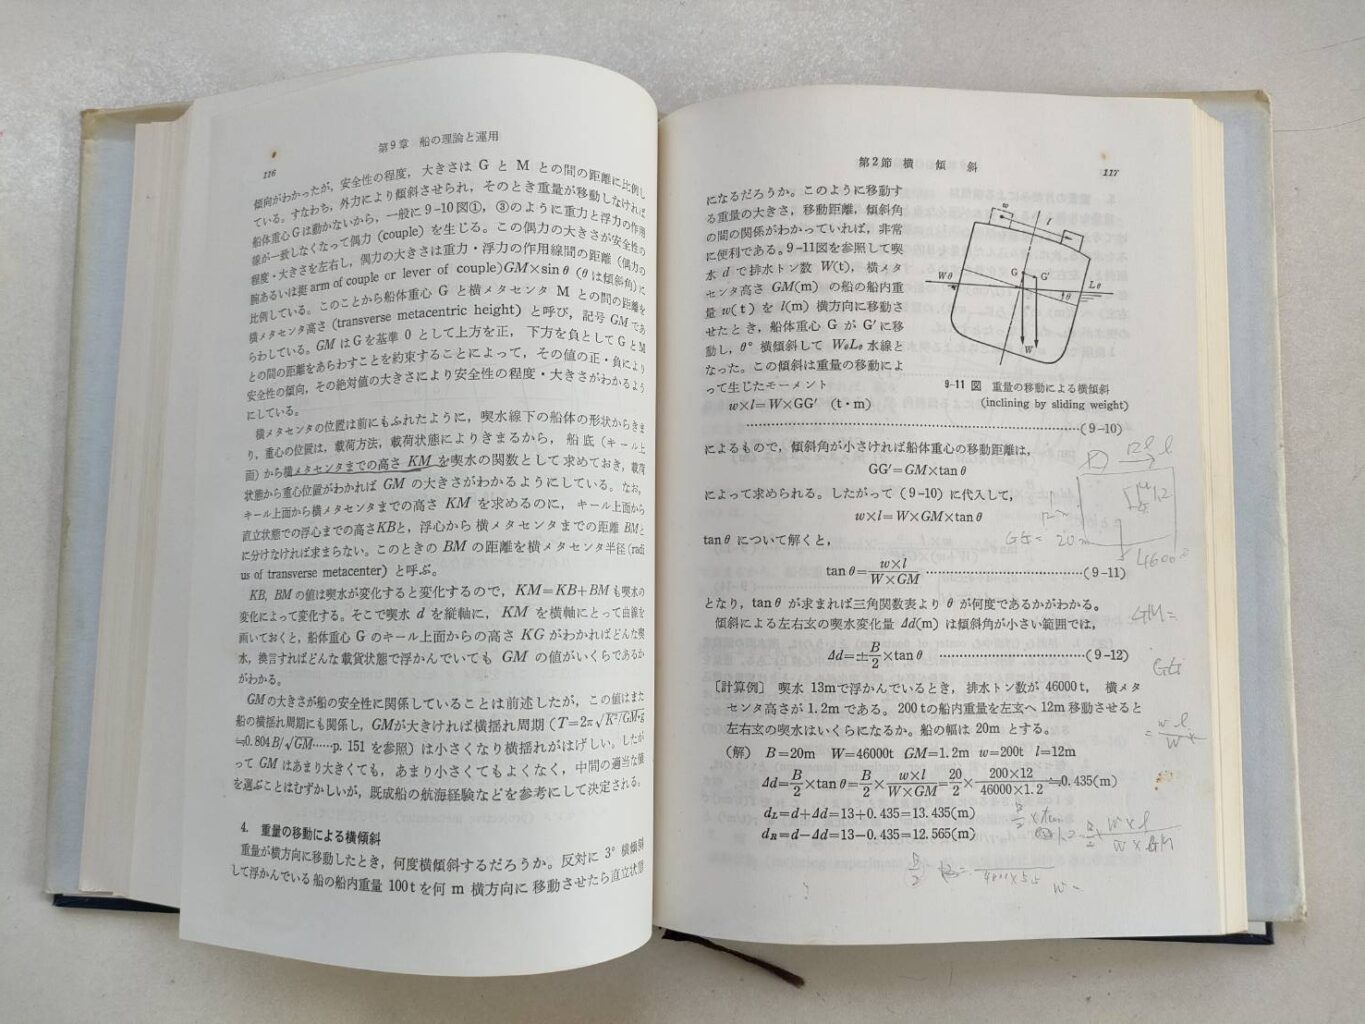 第9章 船の理論と運用
116
傾向がわかったが，安全性の程度，大きさは G と M との間の距離に比例し
ている。すなわち，外力により傾斜させられ，そのとき重量が移動しなければ
船体重心Gは動かないから，一般に9-10図①，③のように重力と浮力の作用
線が一致しなくなって偶力 (couple) を生じる。この偶力の大きさが安全性の
程度・大きさを左右し，偶力の大きさは重力・浮力の作用線間の距離 (偶力の
腕あるいは挺 arm of couple or lever of couple)GM×sin θ (θ は傾斜角) に
比例している。このことから船体重心 G と横メタセンタ M との間の距離を
横メタセンタ高さ (transverse metacentric height) と呼び，記号 GM であ
らわしている。GM はGを基準 0 として上方を正，下方を負としてGとM
との間の距離をあらわすことを約束することによって，その値の正・負により
安全性の傾向，その絶対値の大きさにより安全性の程度・大きさがわかるよう
にしている。
横メタセンタの位置は前にもふれたように，喫水線下の船体の形状からきま
り，重心の位置は，載荷方法，載荷状態によりきまるから，船底 (キール上
面) から横メタセンタまでの高さ KM を喫水の関数として求めておき，載荷
状態から重心位置がわかれば GM の大きさがわかるようにしている。なお，
キール上面から横メタセンタまでの高さ KM を求めるのに，キール上面から
直立状態での浮心までの高さKBと，浮心から横メタセンタまでの距離 BMと
に分けなければ求まらない。このときの BM の距離を横メタセンタ半径(radi
us of transverse metacenter) と呼ぶ。
KB, BM の値は喫水が変化すると変化するので，KM=KB+BM も喫水の
変化によって変化する。そこで喫水 d を縦軸に，KM を横軸にとって曲線を
画いておくと，船体重心 G のキール上面からの高さ KG がわかればどんな喫
水，換言すればどんな載貨状態で浮かんでいても GM の値がいくらであるか
がわかる。
GMの大きさが船の安全性に関係していることは前述したが，この値はまた
船の横揺れ周期にも関係し，GMが大きければ横揺れ周期 (T=2π√K²/GM·g
≒0.804B/√GM……p. 151 を参照) は小さくなり横揺れがはげしい。したが
って GM はあまり大きくても，あまり小さくてもよくなく，中間の適当な値
を選ぶことはむずかしいが，既成船の航海経験などを参考にして決定される。
4. 重量の移動による横傾斜
重量が横方向に移動したとき，何度横傾斜するだろうか。反対に 3° 横傾斜
して浮かんでいる船の船内重量 100t を何 m 横方向に移動させたら直立状態
第2節 横 傾 斜
117
になるだろうか。このように移動す
る重量の大きさ，移動距離，傾斜角
の間の関係がわかっていれば，非常
に便利である。9-11図を参照して喫
水 d で排水トン数 W(t)，横メタ
センタ高さ GM(m) の船の船内重
量 w(t) を l(m) 横方向に移動さ
せたとき，船体重心 G が G′に移
動し，θ° 横傾斜して WθLθ 水線と
なった。この傾斜は重量の移動によ
って生じたモーメント
w
l
G
G′
Wθ
Lθ
θ
W
9-11 図 重量の移動による横傾斜
(inclining by sliding weight)
w×l=W×GG′ (t・m)
……………………………………(9-10)
によるもので，傾斜角が小さければ船体重心の移動距離は，
GG′=GM×tan θ
によって求められる。したがって (9-10) に代入して，
w×l=W×GM×tan θ
tan θ について解くと，
tan θ= w×l / W×GM ……………………(9-11)
となり，tan θ が求まれば三角関数表より θ が何度であるかがわかる。
傾斜による左右玄の喫水変化量 Δd(m) は傾斜角が小さい範囲では，
Δd=± B/2 ×tan θ ……………………(9-12)
〔計算例〕 喫水 13mで浮かんでいるとき，排水トン数が 46000t，横メタ
センタ高さが 1.2m である。200tの船内重量を左玄へ 12m 移動させると
左右玄の喫水はいくらになるか。船の幅は 20m とする。
(解) B=20m W=46000t GM=1.2m w=200t l=12m
Δd= B/2 ×tan θ= B/2 × w×l / W×GM = 20/2 × 200×12 / 46000×1.2 ≒0.435(m)
dL=d+Δd=13+0.435=13.435(m)
dR=d−Δd=13−0.435=12.565(m)
l
20m
46000
GM=